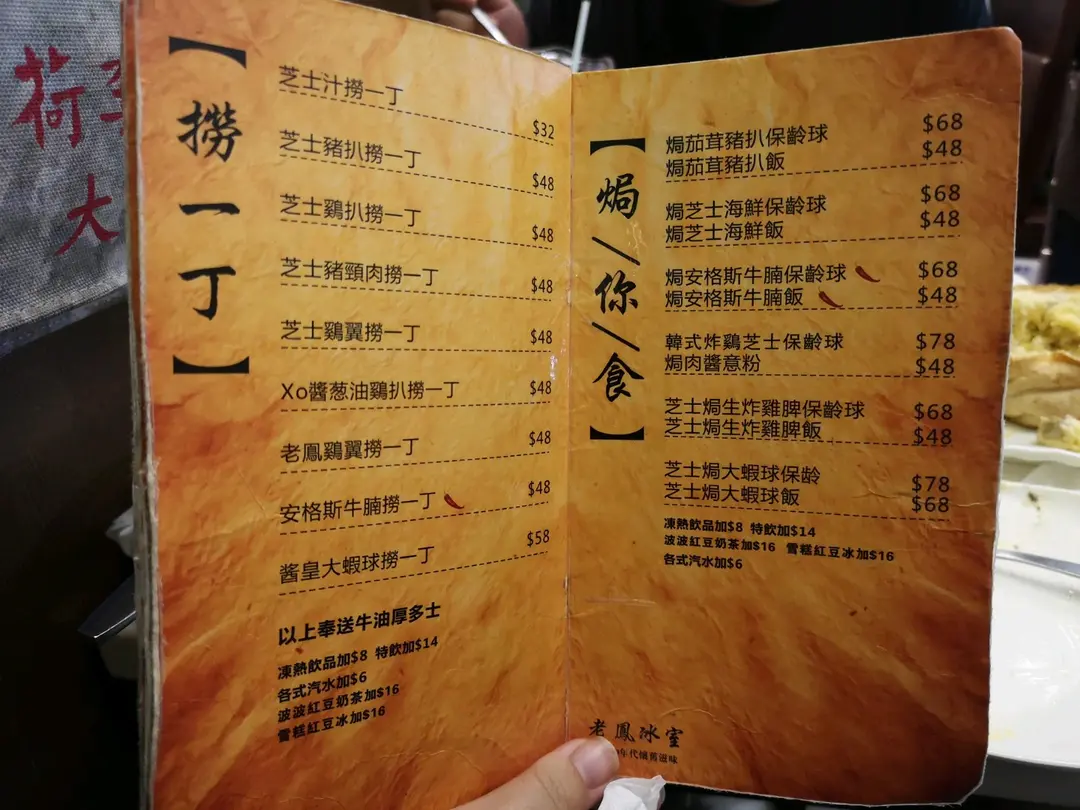 荷
大
【撈一丁】
芝士汁撈一丁 $32
芝士豬扒撈一丁 $48
芝士鷄扒撈一丁 $48
芝士豬頸肉撈一丁 $48
芝士鷄翼撈一丁 $48
Xo醬葱油鷄扒撈一丁 $48
老鳳鷄翼撈一丁 $48
安格斯牛腩撈一丁 $48
酱皇大蝦球撈一丁 $58
以上奉送牛油厚多士
凍熱飲品加$8 特飲加$14
各式汽水加$6
波波紅豆奶茶加$16
雪糕紅豆冰加$16
【焗/你/食】
焗茄茸豬扒保齡球 $68
焗茄茸豬扒飯 $48
焗芝士海鮮保齡球 $68
焗芝士海鮮飯 $48
焗安格斯牛腩保齡球 $68
焗安格斯牛腩飯 $48
韓式炸鷄芝士保齡球 $78
焗肉醬意粉 $48
芝士焗生炸雞脾保齡球 $68
芝士焗生炸雞脾飯 $48
芝士焗大蝦球保龄 $78
芝士焗大蝦球飯 $68
凍熱飲品加$8 特飲加$14
波波紅豆奶茶加$16 雪糕紅豆冰加$16
各式汽水加$6
老鳳冰室
年代懷舊滋味